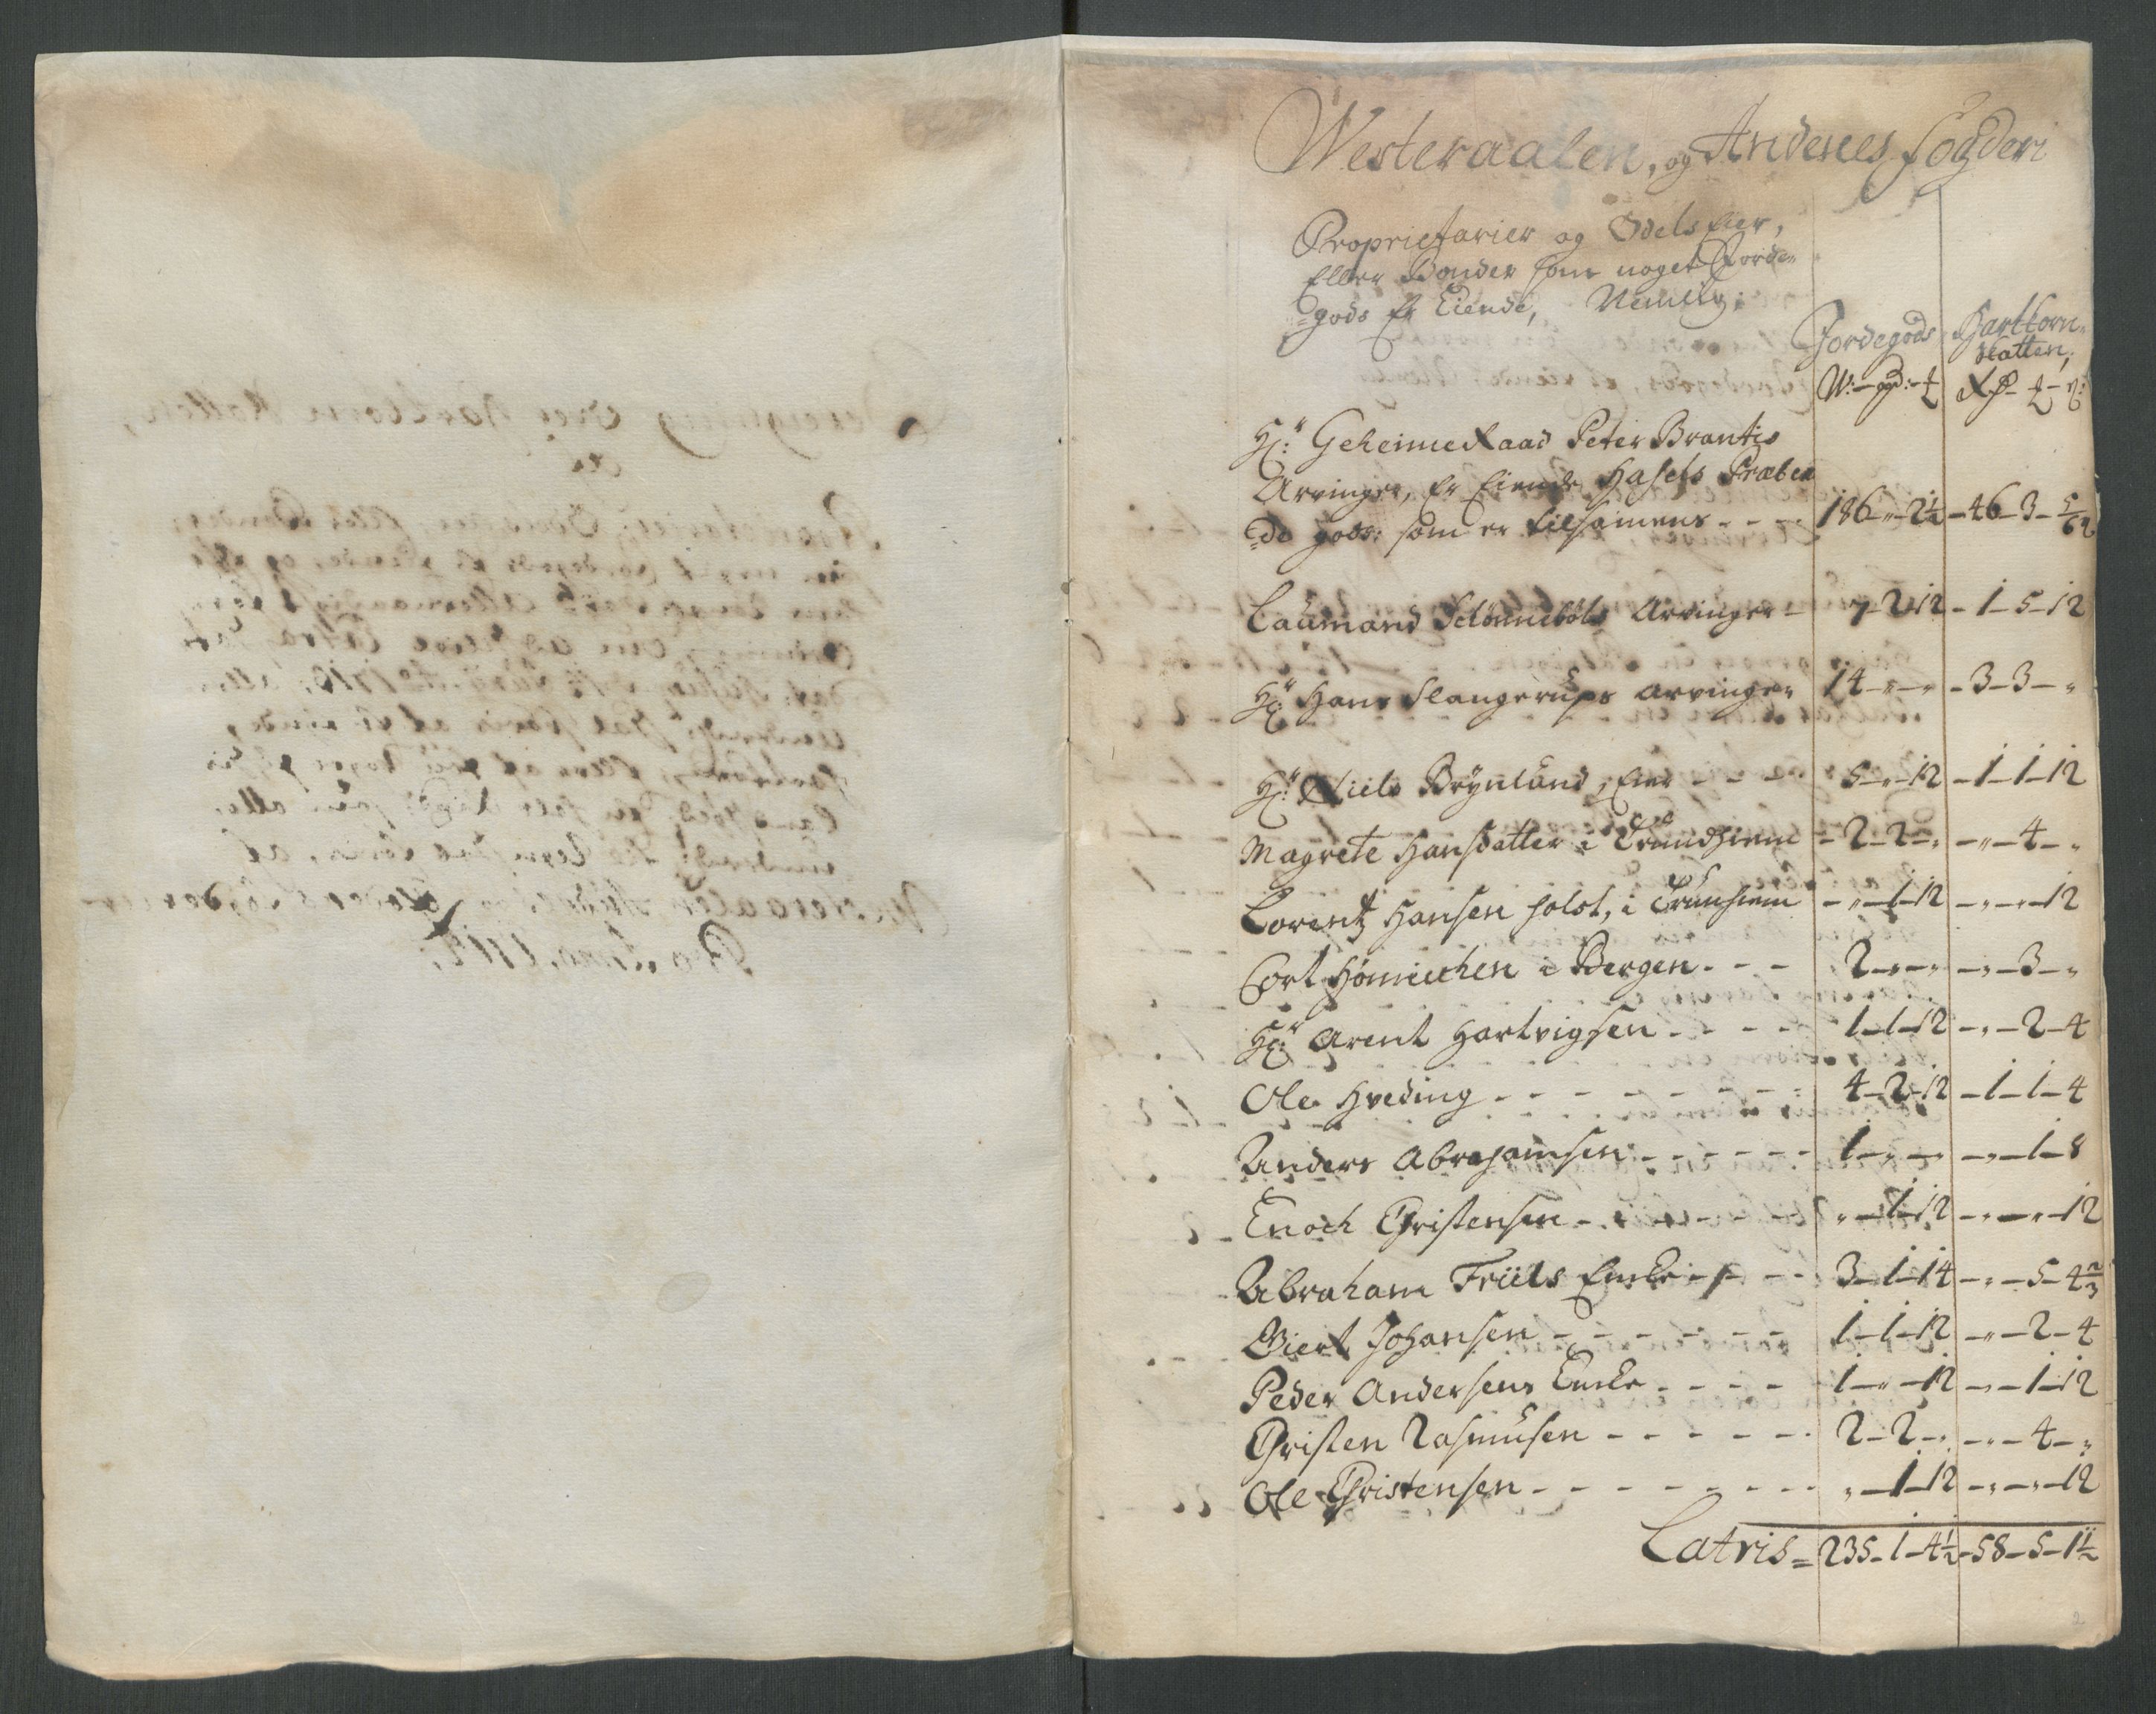 Westeraalen, og Andenes fogderi
Proprietarier og Odels Eier,
Eller Bønder som noget Jorde-
=gods Er Eiende, Nemlig:
Jordegods Hartkorn-
skatten,
W:– pd:– ℔ Rdr– ℔– ß:
Hr: Geheimeraad Peter Brantis
Arvinger, Er Eiende Hasels Præben
=de gods: som er tilsamens - - - 186–„–2½ –46–3–
Laumand Schønnebøls Arvinger – 7–2–12 – 1–5–12
Hr: Hans Slangerups Arvinger 14–„–„ –3–3–„
Hr: Niels Brynlund, Eier - - - 5–„–12 –1–1–12
Magrete Hansdatter i Trundhiem – 2–2–„ –„–4–„
Lorentz Hansen Holst, i Trunhiem –„–1–12 –„–„–12
Cort Hønnichen i Bergen - - - 2–„–„ –„–3–„
Hr: Arent Hartvigsen - - - - 1–1–12 –„–2–4
Ole Hveding - - - - - - - 4–2–12 –1–1–4
Anders Abrahamsen - - - - - - 1–„–„ –„–1–8
Enoch Christensen - - - - - - „–1–12 –„–„–12
Abraham Friils Encke - - - - 3–1–14 –„–5–4⅔
Giert Johansen - - - - - - 1–1–12 –„–2–4
Peder Andersens Encke - - - - 1–„–12 –„–1–12
Christen Rasmusen - - - - - - 2–2–„ –„–4–„
Ole Christensen - - - - - - - - „–1–12 –„–„–12
Latris = 235–1–4½ –58–5–1½
2